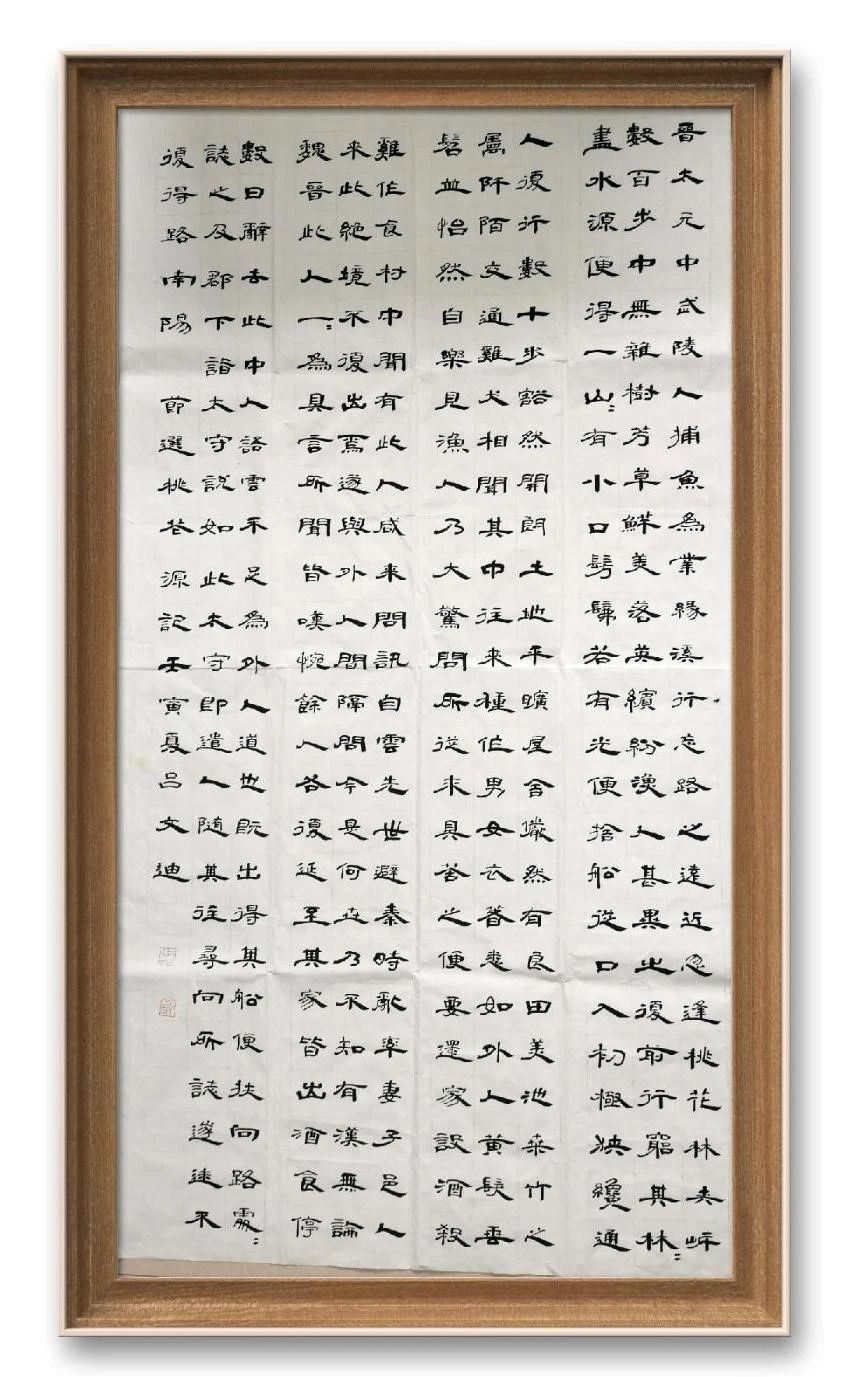 晉太元中武陵人捕魚為業緣溪行忘路之遠近忽逢桃花林夾岸
數百步中無雜樹芳草鮮美落英繽紛漁人甚異之復前行窮其林〻
盡水源便得一山〻有小口髣髴若有光便捨船從口入初極狹纔通
人復行數十步豁然開朗土地平曠屋舍儼然有良田美池桑竹之
屬阡陌交通雞犬相聞其中往來種作男女衣着悉如外人黃髮垂
髫並怡然自樂見漁人乃大驚問所從來具答之便要還家設酒殺
雞作食村中聞有此人咸來問訊自雲先世避秦時亂率妻子邑人
來此絕境不復出焉遂與外人間隔問今是何世乃不知有漢無論
魏晉此人一〻為具言所聞皆嘆惋餘人各復延至其家皆出酒食停
數日辭去此中人語雲不足為外人道也既出得其船便扶向路處〻
誌之及郡下詣太守說如此太守即遣人隨其往尋向所誌遂迷不
復得路南陽 節選桃花源記壬寅夏呂文迪